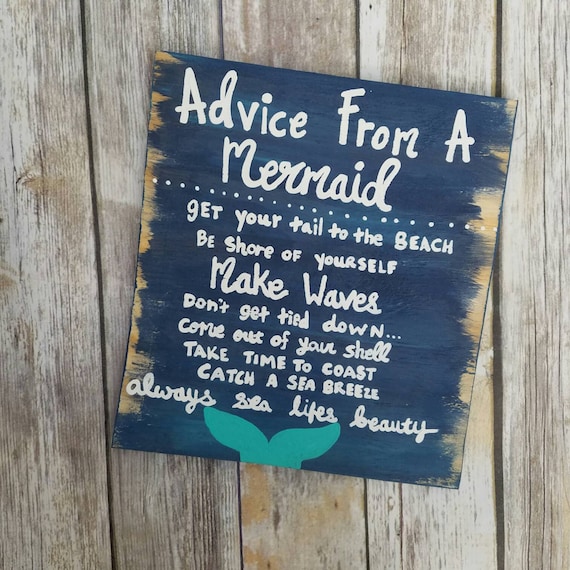 Advice From A
Mermaid
gET your tail to the BEACH
BE Shore OF YOURSELF
Make Waves
Don't get tied down...
come out of your shell
TAKE TIME TO COAST
CATCH A SEA BREEZE
always sea lifes beauty